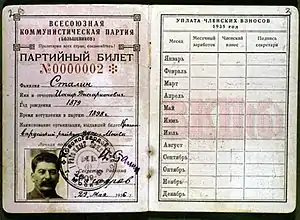 ВСЕСОЮЗНАЯ
КОММУНИСТИЧЕСКАЯ ПАРТИЯ
(БОЛЬШЕВИКОВ)
Пролетарии всех стран, соединяйтесь!
ПАРТИЙНЫЙ БИЛЕТ
№0000002
Фамилия Сталин
Имя и отчество Иосиф Виссарионович
Год рождения 1879
Время вступления в партию 1898 г.
Наименование организации, выдавшей билет
Москвы
Секретарь Райкома
УПЛАТА ЧЛЕНСКИХ ВЗНОСОВ
Месяц
Месячный заработок
Членский взнос
Подпись секретаря
Январь
Февраль
Март
Апрель
Май
Июнь
Июль
Август
Сентябрь
Октябрь
Ноябрь
Декабрь